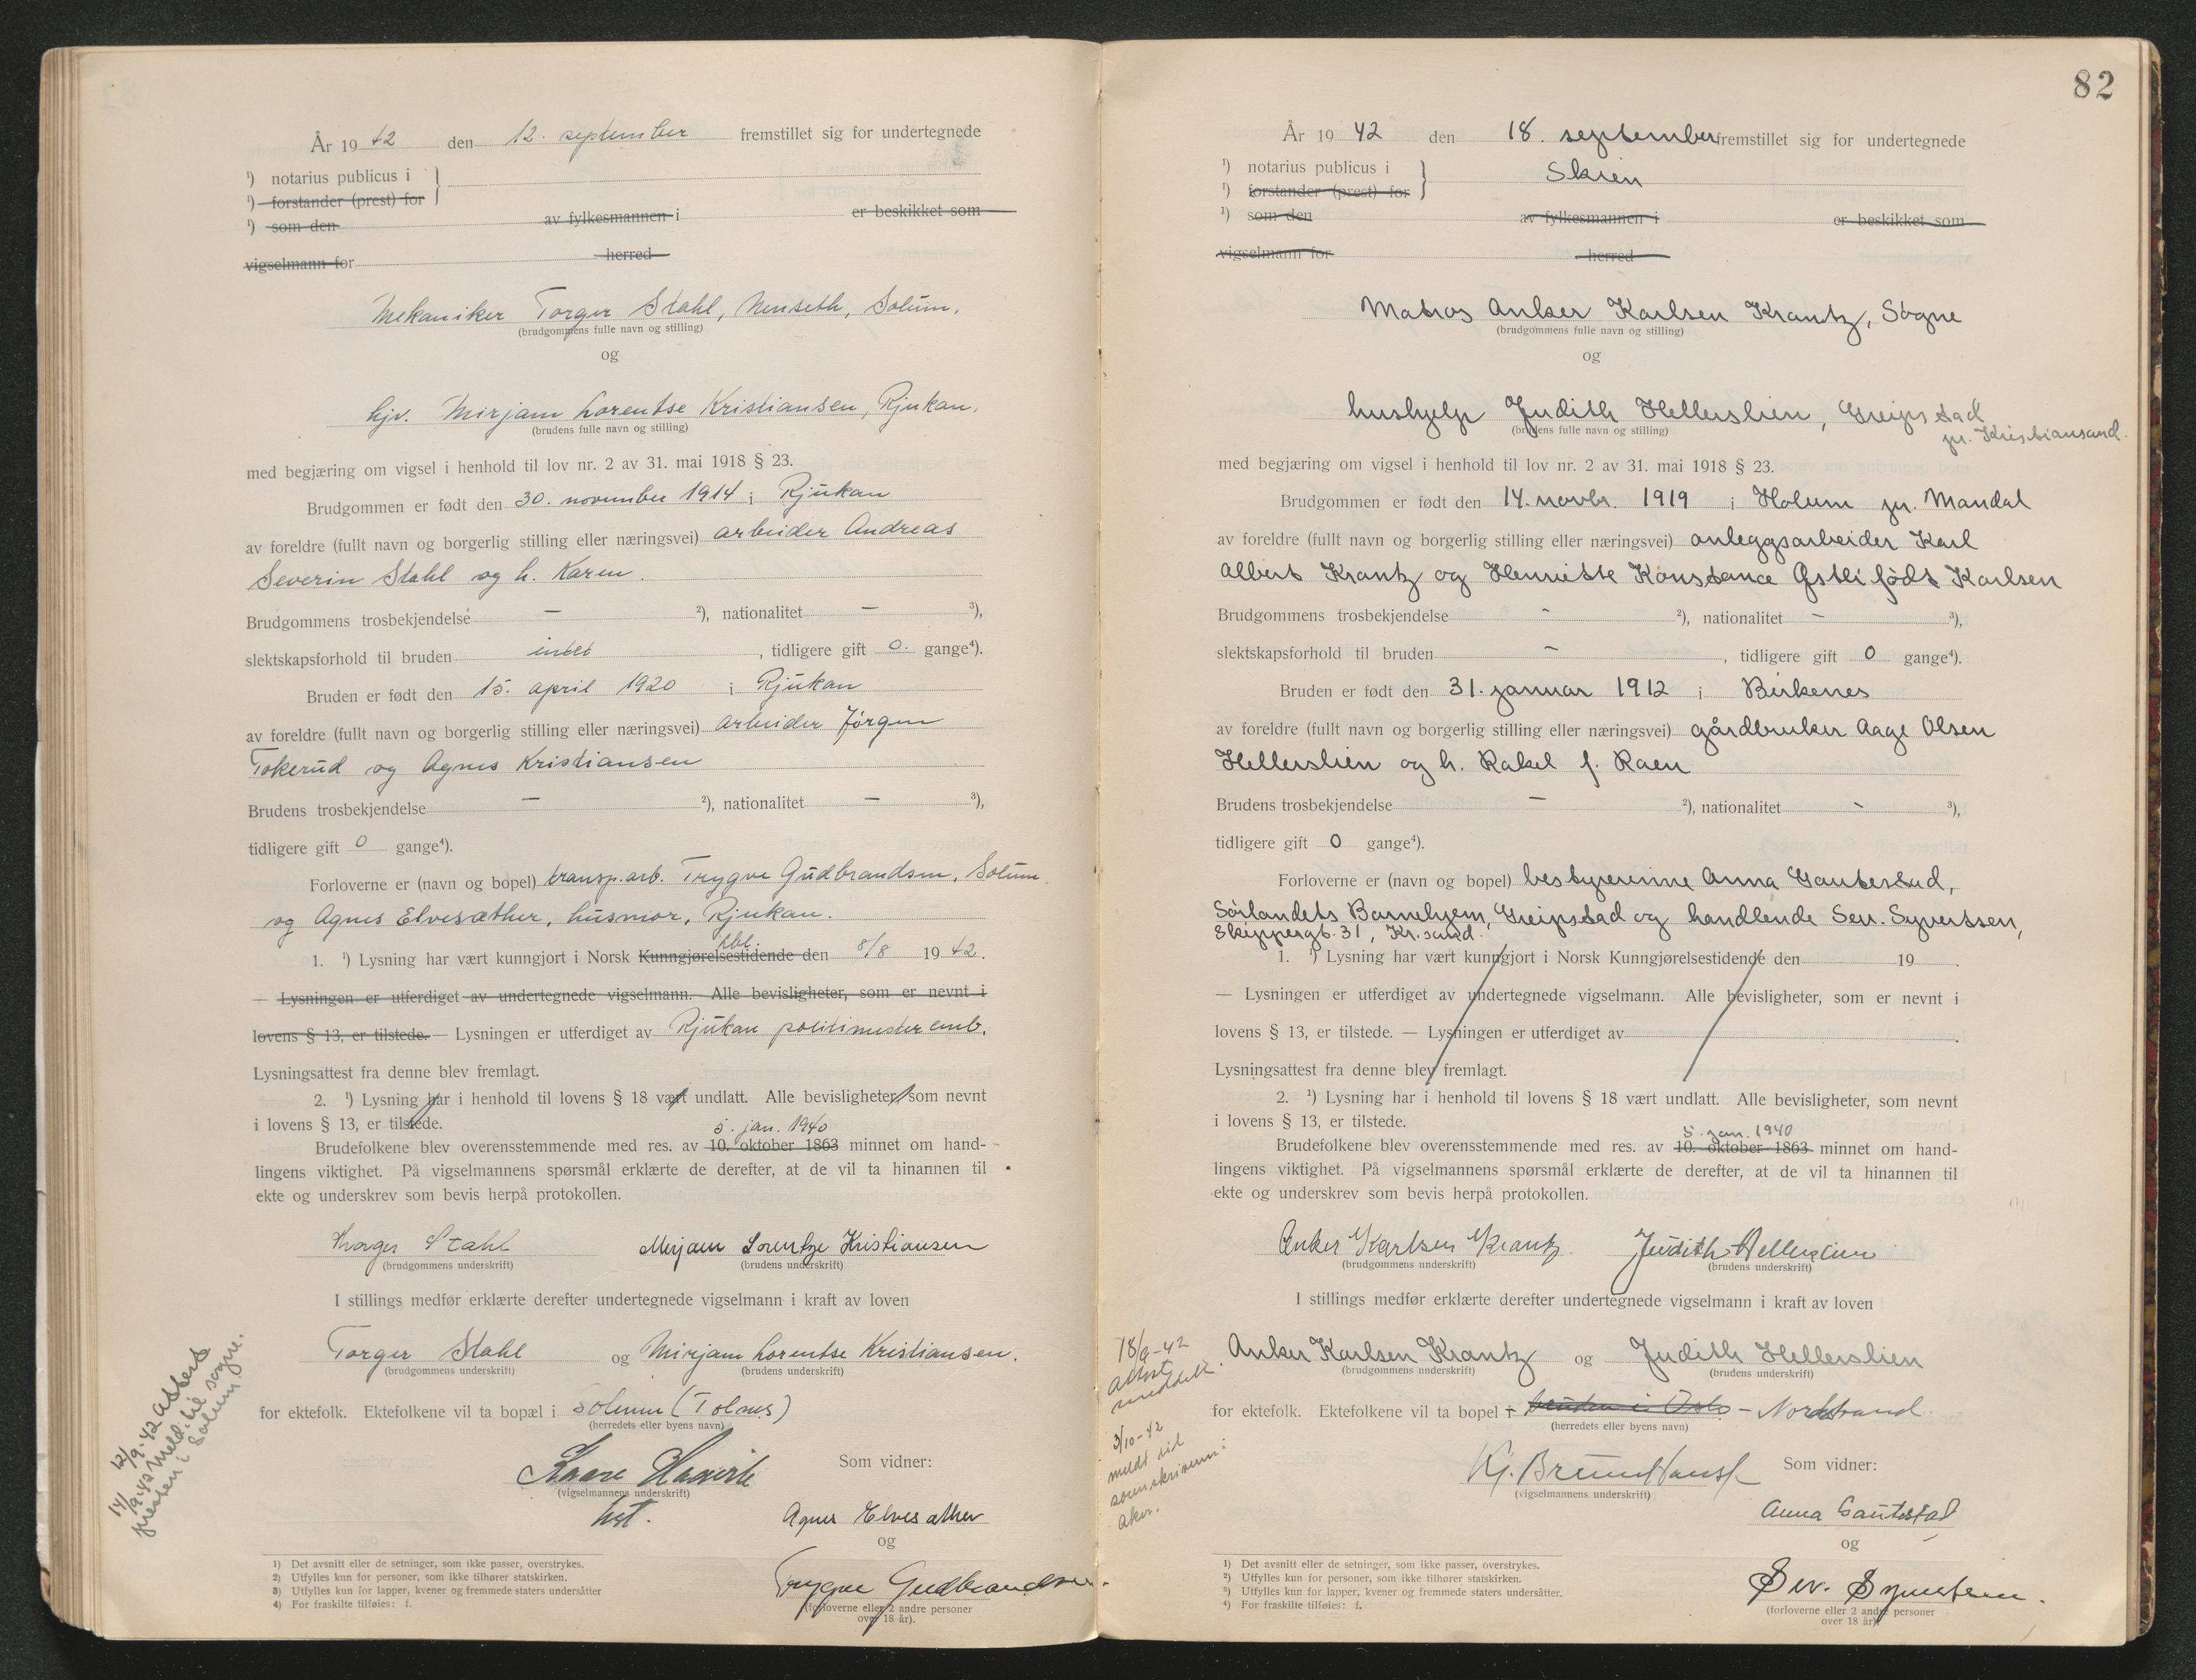 År 19 42 den 12. september fremstillet sig for undertegnede
¹) notarius publicus i
¹) forstander (prest) for
¹) som den av fylkesmannen i er beskikket som
vigselmann for herred
Mekaniker Torger Stahl, Nenseth, Solum.
(brudgommens fulle navn og stilling)
og
hjv. Mirjam Lorentse Kristiansen, Rjukan.
(brudens fulle navn og stilling)
med begjæring om vigsel i henhold til lov nr. 2 av 31. mai 1918 § 23.
Brudgommen er født den 30. november 1914 i Rjukan
av foreldre (fullt navn og borgerlig stilling eller næringsvei) arbeider Andreas
Severin Stahl og h. Karen.
Brudgommens trosbekjendelse — ²), nationalitet — ³),
slektskapsforhold til bruden intet, tidligere gift 0. gange⁴).
Bruden er født den 15. april 1920 i Rjukan
av foreldre (fullt navn og borgerlig stilling eller næringsvei) arbeider Jørgen
Tokerud og Agnes Kristiansen
Brudens trosbekjendelse — ²), nationalitet — ³),
tidligere gift 0 gange⁴).
Forloverne er (navn og bopel) transp.arb. Trygve Gudbrandsen, Solum
og Agnes Elvesæther, husmor, Rjukan.
1. ¹) Lysning har vært kunngjort i Norsk Kunngjørelsestidende den 8/8 19 42.
— Lysningen er utferdiget av undertegnede vigselmann. Alle bevisligheter, som er nevnt i
lovens § 13, er tilstede. — Lysningen er utferdiget av Rjukan politimester emb.
Lysningsattest fra denne blev fremlagt.
2. ¹) Lysning har i henhold til lovens § 18 vært undlatt. Alle bevisligheter, som nevnt
i lovens § 13, er tilstede.
5. jan. 1940
Brudefolkene blev overensstemmende med res. av 10. oktober 1863 minnet om hand-
lingens viktighet. På vigselmannens spørsmål erklærte de derefter, at de vil ta hinannen til
ekte og underskrev som bevis herpå protokollen.
Torger Stahl Mirjam Lorentze Kristiansen
(brudgommens underskrift) (brudens underskrift)
I stillings medfør erklærte derefter undertegnede vigselmann i kraft av loven
Torger Stahl og Mirjam Lorentse Kristiansen.
(brudgommens underskrift) (brudens underskrift)
for ektefolk. Ektefolkene vil ta bopæl i Solum (Tolnes)
(herredets eller byens navn)
Som vidner:
(vigselmannens underskrift)
Agnes Elvesæther
og
Trygve Gudbrandsen.
(forloverne eller 2 andre personer
over 18 år).
12/9-42 attest
14/9-42 meld. til sogne-
presten i Solum.
1) Det avsnitt eller de setninger, som ikke passer, overstrykes.
2) Utfylles kun for personer, som ikke tilhører statskirken.
3) Utfylles kun for lapper, kvener og fremmede staters undersåtter
4) For fraskilte tilføies: f.
82
År 19 42 den 18. september fremstillet sig for undertegnede
¹) notarius publicus i Skien
¹) forstander (prest) for
¹) som den av fylkesmannen i er beskikket som
vigselmann for herred
Matros Anker Karlsen Krantz, Søgne
(brudgommens fulle navn og stilling)
og
hushjelp Judith Hellerslien, Greipstad
pr. Kristiansand.
(brudens fulle navn og stilling)
med begjæring om vigsel i henhold til lov nr. 2 av 31. mai 1918 § 23.
Brudgommen er født den 14. novbr. 1919 i Holum pr. Mandal
av foreldre (fullt navn og borgerlig stilling eller næringsvei) anleggsarbeider Karl
Albert Krantz og Henriette Konstance Østli født Karlsen
Brudgommens trosbekjendelse - ²), nationalitet - ³),
slektskapsforhold til bruden -, tidligere gift 0 gange⁴).
Bruden er født den 31. januar 1912 i Birkenes
av foreldre (fullt navn og borgerlig stilling eller næringsvei) gårdbruker Aage Olsen
Hellerslien og h. Rakel f. Raen
Brudens trosbekjendelse — ²), nationalitet - ³),
tidligere gift 0 gange⁴).
Forloverne er (navn og bopel) bestyrerinne Anna Gautestad,
Sørlandets Barnehjem, Greipstad og handlende Sev. Syvertsen,
Skippergt. 31, Kr.sand.
1. ¹) Lysning har vært kunngjort i Norsk Kunngjørelsestidende den 19 .
— Lysningen er utferdiget av undertegnede vigselmann. Alle bevisligheter, som er nevnt i
lovens § 13, er tilstede. — Lysningen er utferdiget av .
Lysningsattest fra denne blev fremlagt.
2. ¹) Lysning har i henhold til lovens § 18 vært undlatt. Alle bevisligheter, som nevnt
i lovens § 13, er tilstede.
5. jan. 1940
Brudefolkene blev overensstemmende med res. av 10. oktober 1863 minnet om hand-
lingens viktighet. På vigselmannens spørsmål erklærte de derefter, at de vil ta hinannen til
ekte og underskrev som bevis herpå protokollen.
Anker Karlsen Krantz. Judith Hellerslien
(brudgommens underskrift) (brudens underskrift)
I stillings medfør erklærte derefter undertegnede vigselmann i kraft av loven
Anker Karlsen Krantz og Judith Hellerslien
(brudgommens underskrift) (brudens underskrift)
for ektefolk. Ektefolkene vil ta bopel i bruden i Oslo - Nordstrand.
(herredets eller byens navn)
Som vidner:
(vigselmannens underskrift)
Anna Gautestad
og
Sev. Syvertsen.
(forloverne eller 2 andre personer
over 18 år).
18/9-42
attest
meddelt.
3/10-42
meldt til
sorenskriveren i
Aker.
1) Det avsnitt eller de setninger, som ikke passer, overstrykes.
2) Utfylles kun for personer, som ikke tilhører statskirken.
3) Utfylles kun for lapper, kvener og fremmede staters undersåtter.
4) For fraskilte tilføies: f.